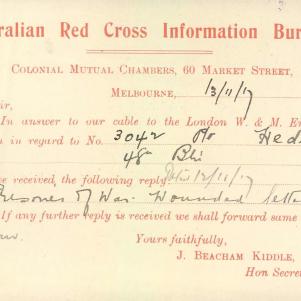 ralian Red Cross Information Bur
Colonial Mutual Chambers, 60 Market Street,
Melbourne, 13/11/17
ir,
In answer to our cable to the London W. & M. En
n in regard to No. 3042 Pte Hed
48 Bn
ve received, the following reply Dated 12/11/17
risoner of War. Wounded. Lette
If any further reply is received we shall forward same
Yours faithfully,
J. Beacham Kiddle,
Hon Secre